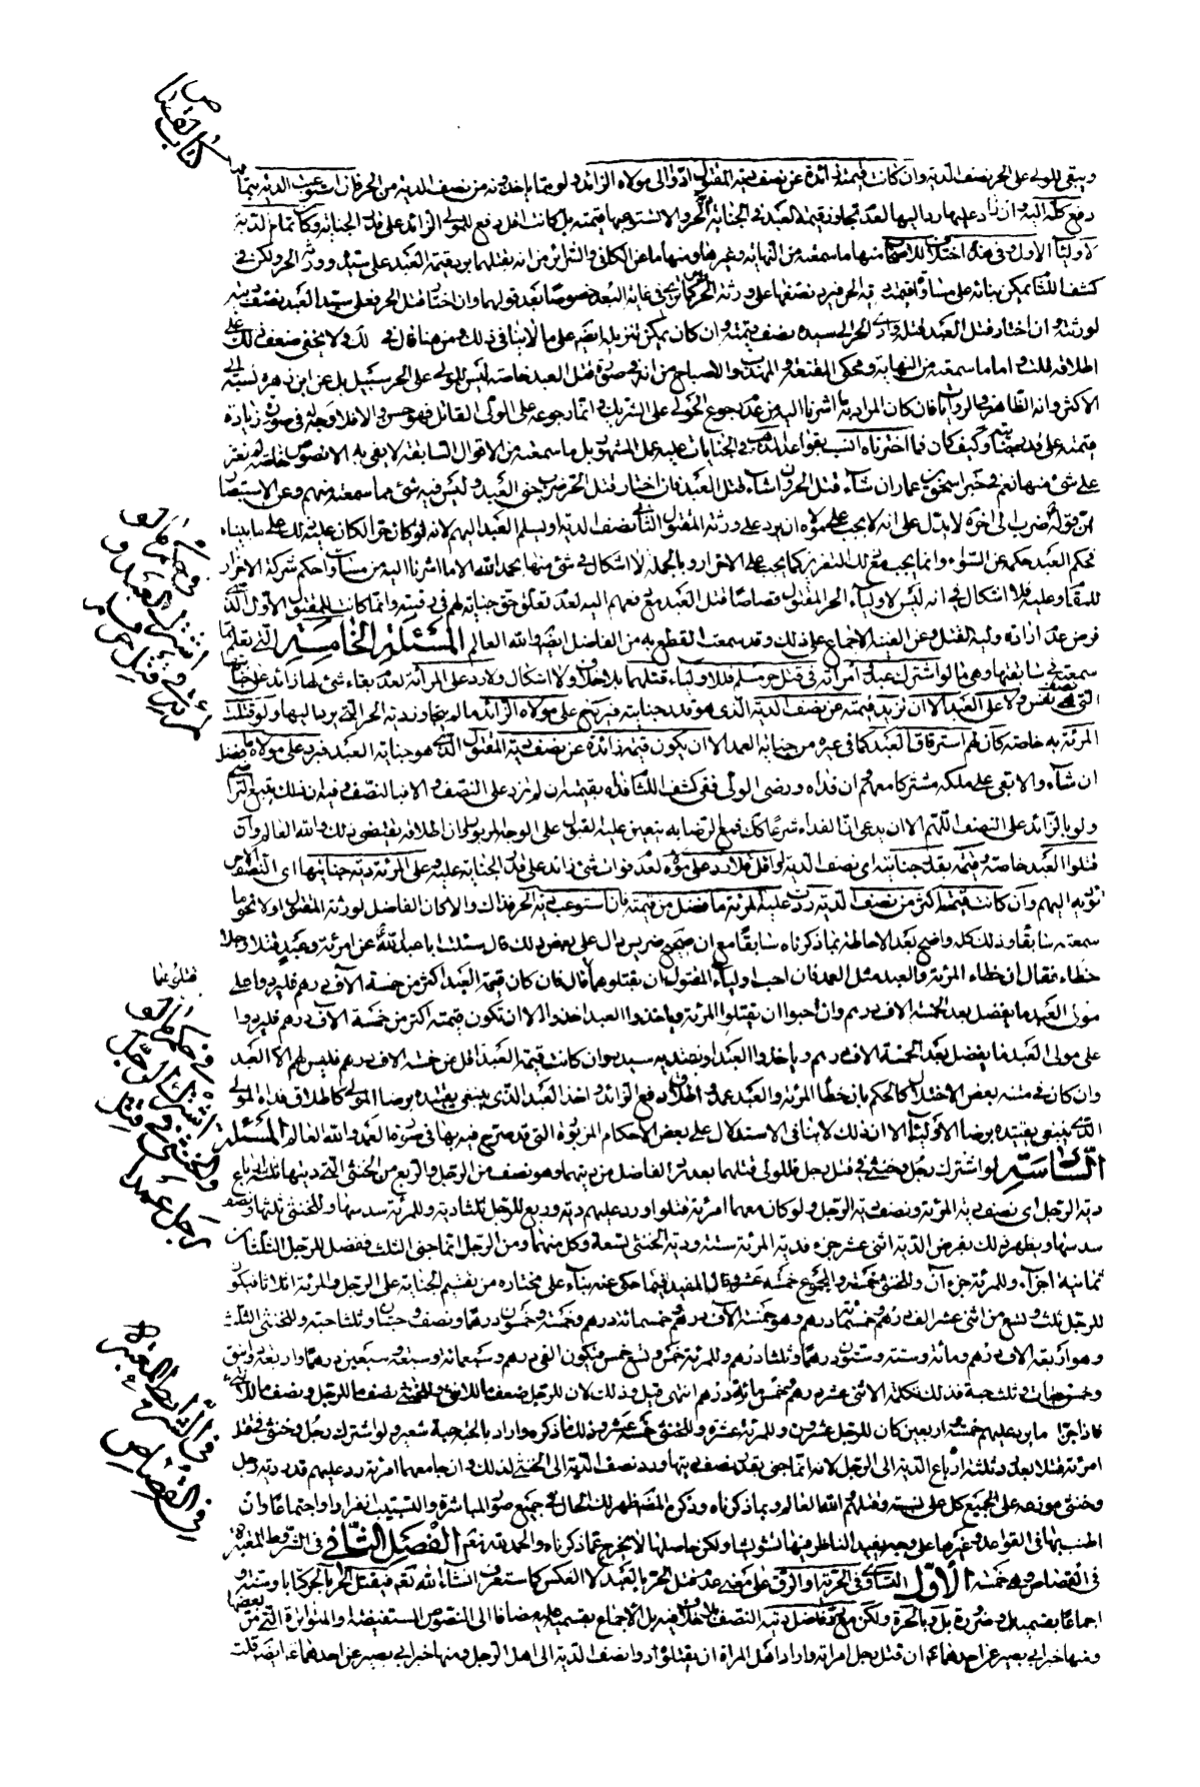 كتاب القصاص
ويبقى للولي على الحر نصف الدية وان كانت قيمته زائدة عن نصف دية المقتول ادوا الى مولاه الزائد ولو مما يأخذونه من نصف الدية من الحر فان استوعب الدية
دفع كله اليه وان زاد عليها رد اليها لعدم تجاوز قيمة العبد في الجناية الحر والا استوعبها قيمته بل كانت اقل دفع للمولى الزائد على قدر الجناية وكان تمام الدية
لاولياء الاول وفي هذه اختلاف للاصحاب منها ما سمعته من النهاية وغيرها ومنها ما عن الكافي والسرائر من انه يقتلهما يرد قيمة العبد على سيده وورثة الحر ولكن في
كشف اللثام يمكن بنائه على مساواة قيمته دية الحر فيرد نصفها على ورثة الحر في غاية البعد خصوصا بعد قولهما وان اختار قتل الحر فعلى سيد العبد نصف ديته
لورثته وان اختار قتل العبد قتله وادى الحر الى سيده نصف قيمته وان كان يمكن تنزيله ايضا على ما لا ينافي ذلك ومن هنا قال في ولا يخفى ضعف ذلك على
اطلاقه قلت واما ما سمعته من النهاية ومحكي المقنعة والمهذب والاصباح من انه في صورة قتل العبد خاصة ليس للمولى على الحر سبيل بل عن ابن زهرة نسبته الى
الاكثر وانه الظاهر في الروايات فان كان المراد به ما اشرنا اليه من عدم رجوع المولى على الشريك وانما رجوعه على الولي القاتل فهو حسن والا فلا وجه له في صورة زيادة
قيمته على قدر جنايته وكيف كان فما اخترناه انسب بقواعد المذهب في الجنايات عليه عمل المشهور بل ما سمعته من الاقوال السابقة لا يفي به الا نصوص خاصة لم نعثر
على شيء منها نعم في خبر اسحق بن عمار ان شاء قتل الحر وان شاء قتل العبد فان اختار قتل الحر ضرب جنبي العبد وليس فيه شيء مما سمعته منهم وعن الاستبصار
ان قوله ضرب الى اخره لا يدل على انه لا يجب على مولاه ان يرد على ورثة المقتول الثاني نصف الدية او يسلم العبد اليهم لانه لو كان حرا لكان عليه ذلك على ما بيناه
فحكم العبد حكمه على السواء وانما يجب مع ذلك التعزير كما يجب على الاحرار وبالجملة لا اشكال في شيء منها بحمد الله الا ما اشرنا اليه من مساواة حكم شركة الاحرار
للمقام وعليه فلا اشكال في انه ليس لاولياء الحر المقتول قصاصا قتل العبد مع دفعهم اليه لعدم تعلق حق جنايته لهم في رقبته وانما كانت للمقتول الاول الذي
فرض عدم ارادة وليه القتل وعن الغنية الاجماع على ذلك وقد سمعت القطع به من الفاضل ايضا والله العالم المسئلة الخامسة التي يعلم مما
سمعته في سابقتها وهي ما لو اشترك عبد وامرأة في قتل حر مسلم فللاولياء قتلهما بلا خلاف ولا اشكال ولا رد على المرأة لعدم بقاء شيء لها زائد على جنايتها
التي هي نصف نفس ولا على العبد الا ان تزيد قيمته عن نصف الدية الذي هو قدر جنايته فيرد على مولاه الزائد ما لم يتجاوز دية الحر التي يرد اليها ولو قتلت
المرئة به خاصة كان لهم استرقاق العبد كما في غيره من جناية العمد الا ان يكون قيمته زائدة عن نصف دية المقتول الذي هو جناية العبد فيرد على مولاه ما فضل
ان شاء والا بقي على ملكه مشتركا معهم ان فداه ورضى الولي ففي كشف اللثام فداه بقيمته ان لم تزد على النصف والا فبالنصف وفيه ان ذلك يتبع التراضي
ولو بالزائد على النصف اللهم الا ان يدعى ان الفداء شرعا كك فمع الرضا به يتعين عليه القبول على الوجه المزبور وان اطلاقه يقتضي ذلك والله العالم وان
قتلوا العبد خاصة وقيمته بقدر جنايته اي نصف الدية او اقل فلا رد على مولاه لعدم فوات شيء زائد على قدر الجناية عليه وعلى المرئة دية جنايتها اي النصف
تؤديه اليهم وان كانت قيمته اكثر من نصف الدية ردت عليه المرئة ما فضل من قيمته فان استوعب دية الحر فذاك والا كان الفاضل لورثة المقتول اولا نحو ما
سمعته سابقا وذلك كله واضح بعد الاحاطة بما ذكرناه سابقا مع ان صحيح ضريس دال على بعض ذلك قال سئلت ابا عبد الله عن امرئة وعبد قتلا رجلا
خطاء فقال ان خطاء المرئة والعبد مثل العمد فان احب اولياء المقتول ان يقتلوهما قال فان كان قيمة العبد اكثر من خمسة الاف درهم فليردوا على
مولى العبد ما يفضل بعد الخمسة الاف درهم وان احبوا ان يقتلوا المرئة وياخذوا العبد اخذوا الا ان تكون قيمته اكثر من خمسة الاف درهم فليردوا
على مولى العبد ما يفضل بعد الخمسة الاف درهم وياخذوا العبد او يفتديه سيده وان كانت قيمة العبد اقل من خمسة الاف درهم فليس لهم الا العبد
وان كان في متنه بعض الاختلال كالحكم بان خطأ المرئة والعبد عمد واطلاق دفع الزائد واخذ العبد الذي ينبغي تقييده برضا المولى كاطلاق فداء المولى
الذي ينبغي تقييده برضا الاولياء الا ان ذلك لا ينافي الاستدلال على بعض الاحكام المزبورة التي قد صرح فيه بها في صورة العمد والله العالم المسئلة
السادسة لو اشترك رجل وخنثى في قتل رجل فللولي قتلهما بعد رد الفاضل من ديتهما وهو نصف من الرجل والربع من الخنثى التي ديتها ثلثة ارباع
دية الرجل اي نصف دية المرئة ونصف دية الرجل ولو كان معهما امرئة قتلوا ورد عليهم دية وربع للرجل ثلثا دية وللمرئة سدسها وللخنثى ثلثها ونصف
سدسها ويظهر ذلك بفرض الدية اثنى عشر جزء فدية المرئة ستة ودية الخنثى تسعة وكل منهما ومن الرجل انما جنى الثلث فيفضل للرجل الثلثان
ثمانية اجزاء وللمرئة جزءان وللخنثى خمسة والمجموع خمسة عشر وقال المفيد فيما حكى عنه بناء على مختاره من تقسيم الجناية على الرجل والمرئة اثلاثا فيكون
للرجل ثلث وتسع من اثنى عشر الف درهم وخمسمائة درهم وهو خمسة الاف درهم وخمسمائة درهم وخمسة وخمسون درهما ونصف حبتان وثلثا حبة وللخنثى الثلث
وهو اربعة الاف درهم ومائة وستة وستون درهما وثلثا درهم وللمرئة خمس وتسع خمس فيكون الفي درهم وسبعمائة وسبعة وسبعين درهما واربعة دوانيق
وخمس حبات وثلث حبة فذلك تكملة الاثنى عشر درهم وخمس مائة درهم انتهى قيل وذلك لان للرجل ضعف ما للانثى وللخنثى نصف ما للرجل ونصف ما للانثى
فاذا جزا ما يرد عليهم خمسة واربعين كان للرجل عشرون وللمرئة عشرة وللخنثى خمسة عشر وذلك ما ذكره واراد بالحبة حبة شعير ولو اشترك رجل وخنثى في قتل
امرئة قتلا بعد رد ثلثة ارباع الدية الى الرجل لانه انما جنى بقدر نصف ديتها ورد نصف الدية الى الخنثى لذلك وان جامعهما امرئة رد عليهم قدر دية رجل
وخنثى موزعة على الجميع كل على نسبته وقتلهم الله العالم وبما ذكرناه وذكره المصنف ظهر لك الحال في جميع صور المباشرة والتسبيب انفرادا واجتماعا وان
اطنب بها في القواعد وغيرها على وجه يفيد الناظر فيها تشويشا ولكن حاصلها لا يخرج عما ذكرناه والحمد لله نعم الفصل الثاني في الشروط المعتبرة
في القصاص وهي خمسة الاول التساوي في الحرية او الرق على معنى عدم قتل الحر بالعبد لا العكس كما ستعرف انشاء الله نعم فيقتل الحر بالحر كتابا وسنة
اجماعا بقسميه بل وضرورة بل وبالحرة ولكن مع رد فاضل ديته النصف بلا خلاف فيه بل الاجماع بقسميه عليه مضافا الى النصوص المستفيضة او المتواترة التي مر بعضها
ومنها خبر ابي بصير عن احدهما ع ان قتل رجل امراته واراد اهل المراة ان يقتلوه ادوا نصف الدية الى اهل الرجل ومنها خبر ابي بصير عن احدهما ع ايضا قلت
في حكم ما لو
اشترك العبد و
امرئة في قتل حر
قتلوا عبدا
في حكم ما لو
اشترك الرجل
والخنثى في قتل
رجل عمدا
في الشرائط المعتبرة
في القصاص